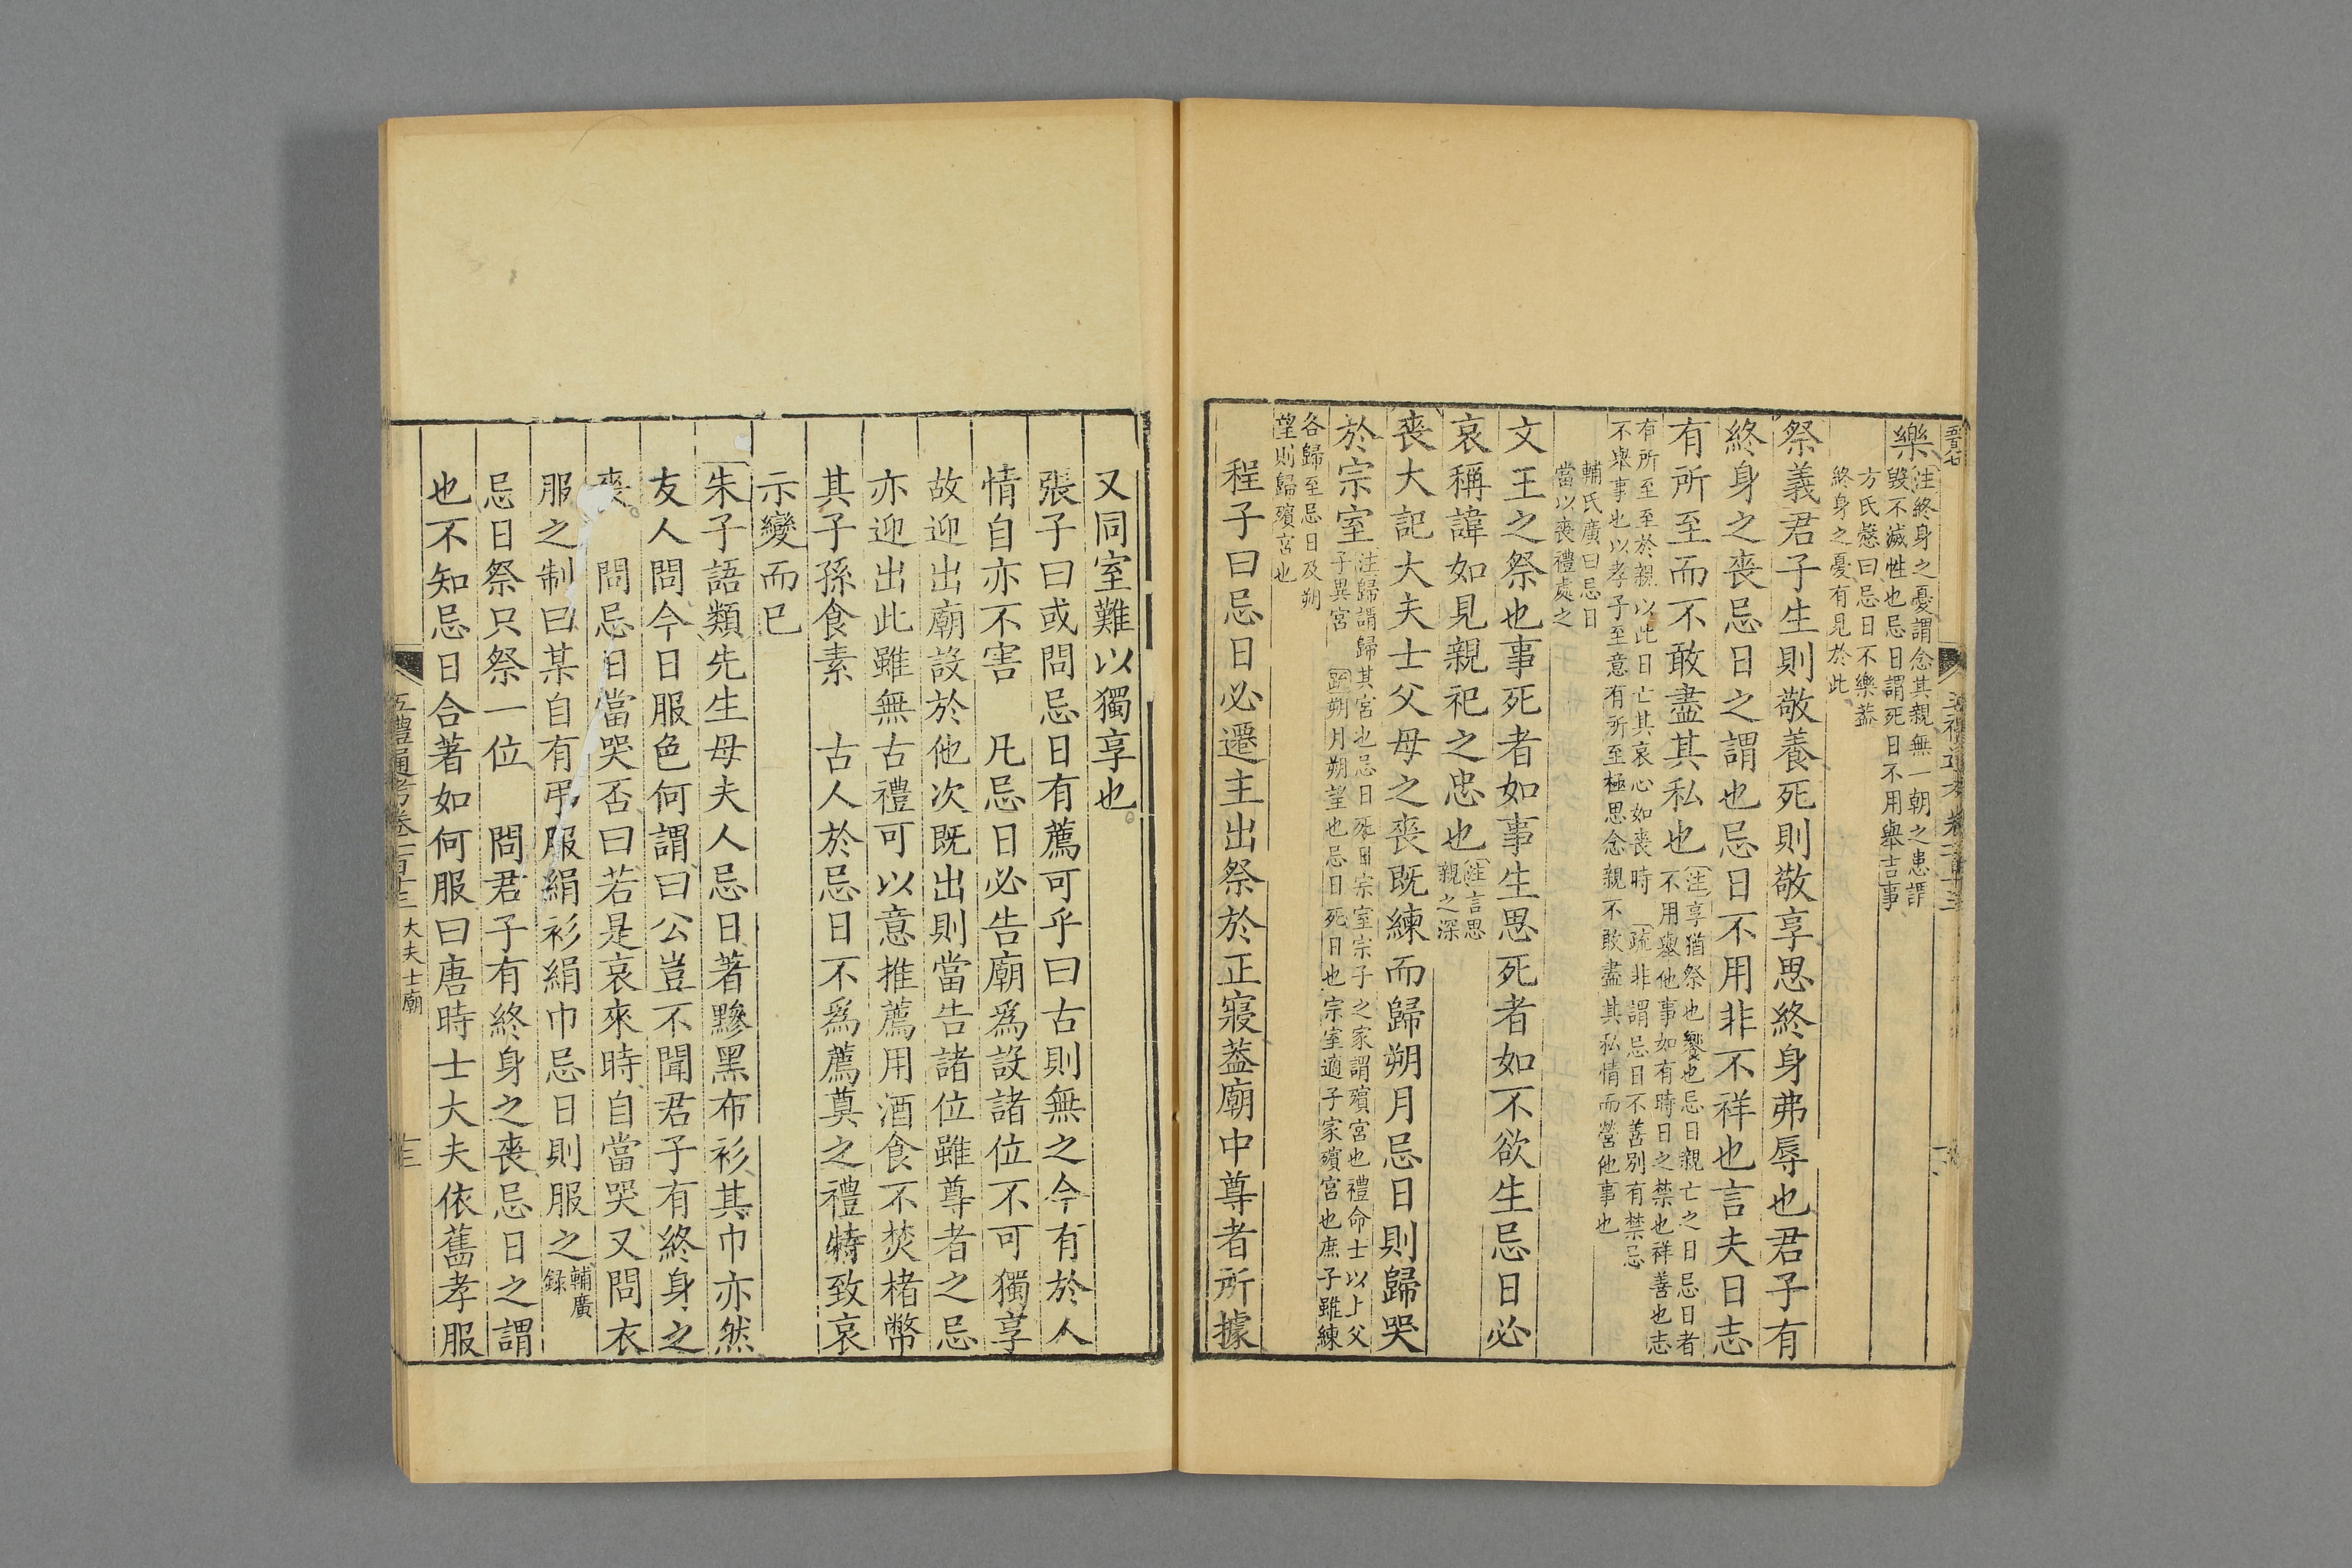 樂注終身之憂謂念其親無一朝之患謂
毀不滅性也忌日謂死日不用舉吉事
方氏慤曰忌日不樂葢
終身之憂有見於此
祭義君子生則敬養死則敬享思終身弗辱也君子有
終身之喪忌日之謂也忌日不用非不祥也言夫日志
有所至而不敢盡其私也注享猶祭也饗也忌日親亡之日忌日者
不用舉他事如有時日之禁也祥善也志
有所至至於親以此日亡其哀心如喪時 疏非謂忌日不善別有禁忌
不舉事也以孝子至意有所至極思念親不敢盡其私情而營他事也
輔氏廣曰忌日
當以喪禮處之
文王之祭也事死者如事生思死者如不欲生忌日必
哀稱諱如見親祀之忠也注言思
親之深
喪大記大夫士父母之喪既練而歸朔月忌日則歸哭
於宗室注歸謂歸其宮也忌日死日宗室宗子之家謂殯宮也禮命士以上父
子異宮 疏朔月朔望也忌日死日也宗室適子家殯宮也庶子雖練
各歸至忌日及朔
望則歸殯宮也
程子曰忌日必遷主出祭於正寢葢廟中尊者所據
又同室難以獨享也
張子曰或問忌日有薦可乎曰古則無之今有於人
情自亦不害 凡忌日必告廟為設諸位不可獨享
故迎出廟設於他次既出則當告諸位雖尊者之忌
亦迎出此雖無古禮可以意推薦用酒食不焚楮幣
其子孫食素 古人於忌日不為薦奠之禮特致哀
示變而已
朱子語類先生母夫人忌日著黲黑布衫其巾亦然
友人問今日服色何謂曰公豈不聞君子有終身之
喪 問忌日當哭否曰若是哀來時自當哭又問衣
服之制曰某自有弔服絹衫絹巾忌日則服之輔廣
録
忌日祭只祭一位 問君子有終身之喪忌日之謂
也不知忌日合著如何服曰唐時士大夫依舊孝服
五禮通考卷一百十三 大夫士廟